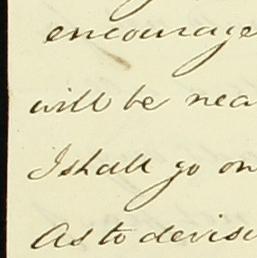 encourage
will be nea
I shall go on
As to devis